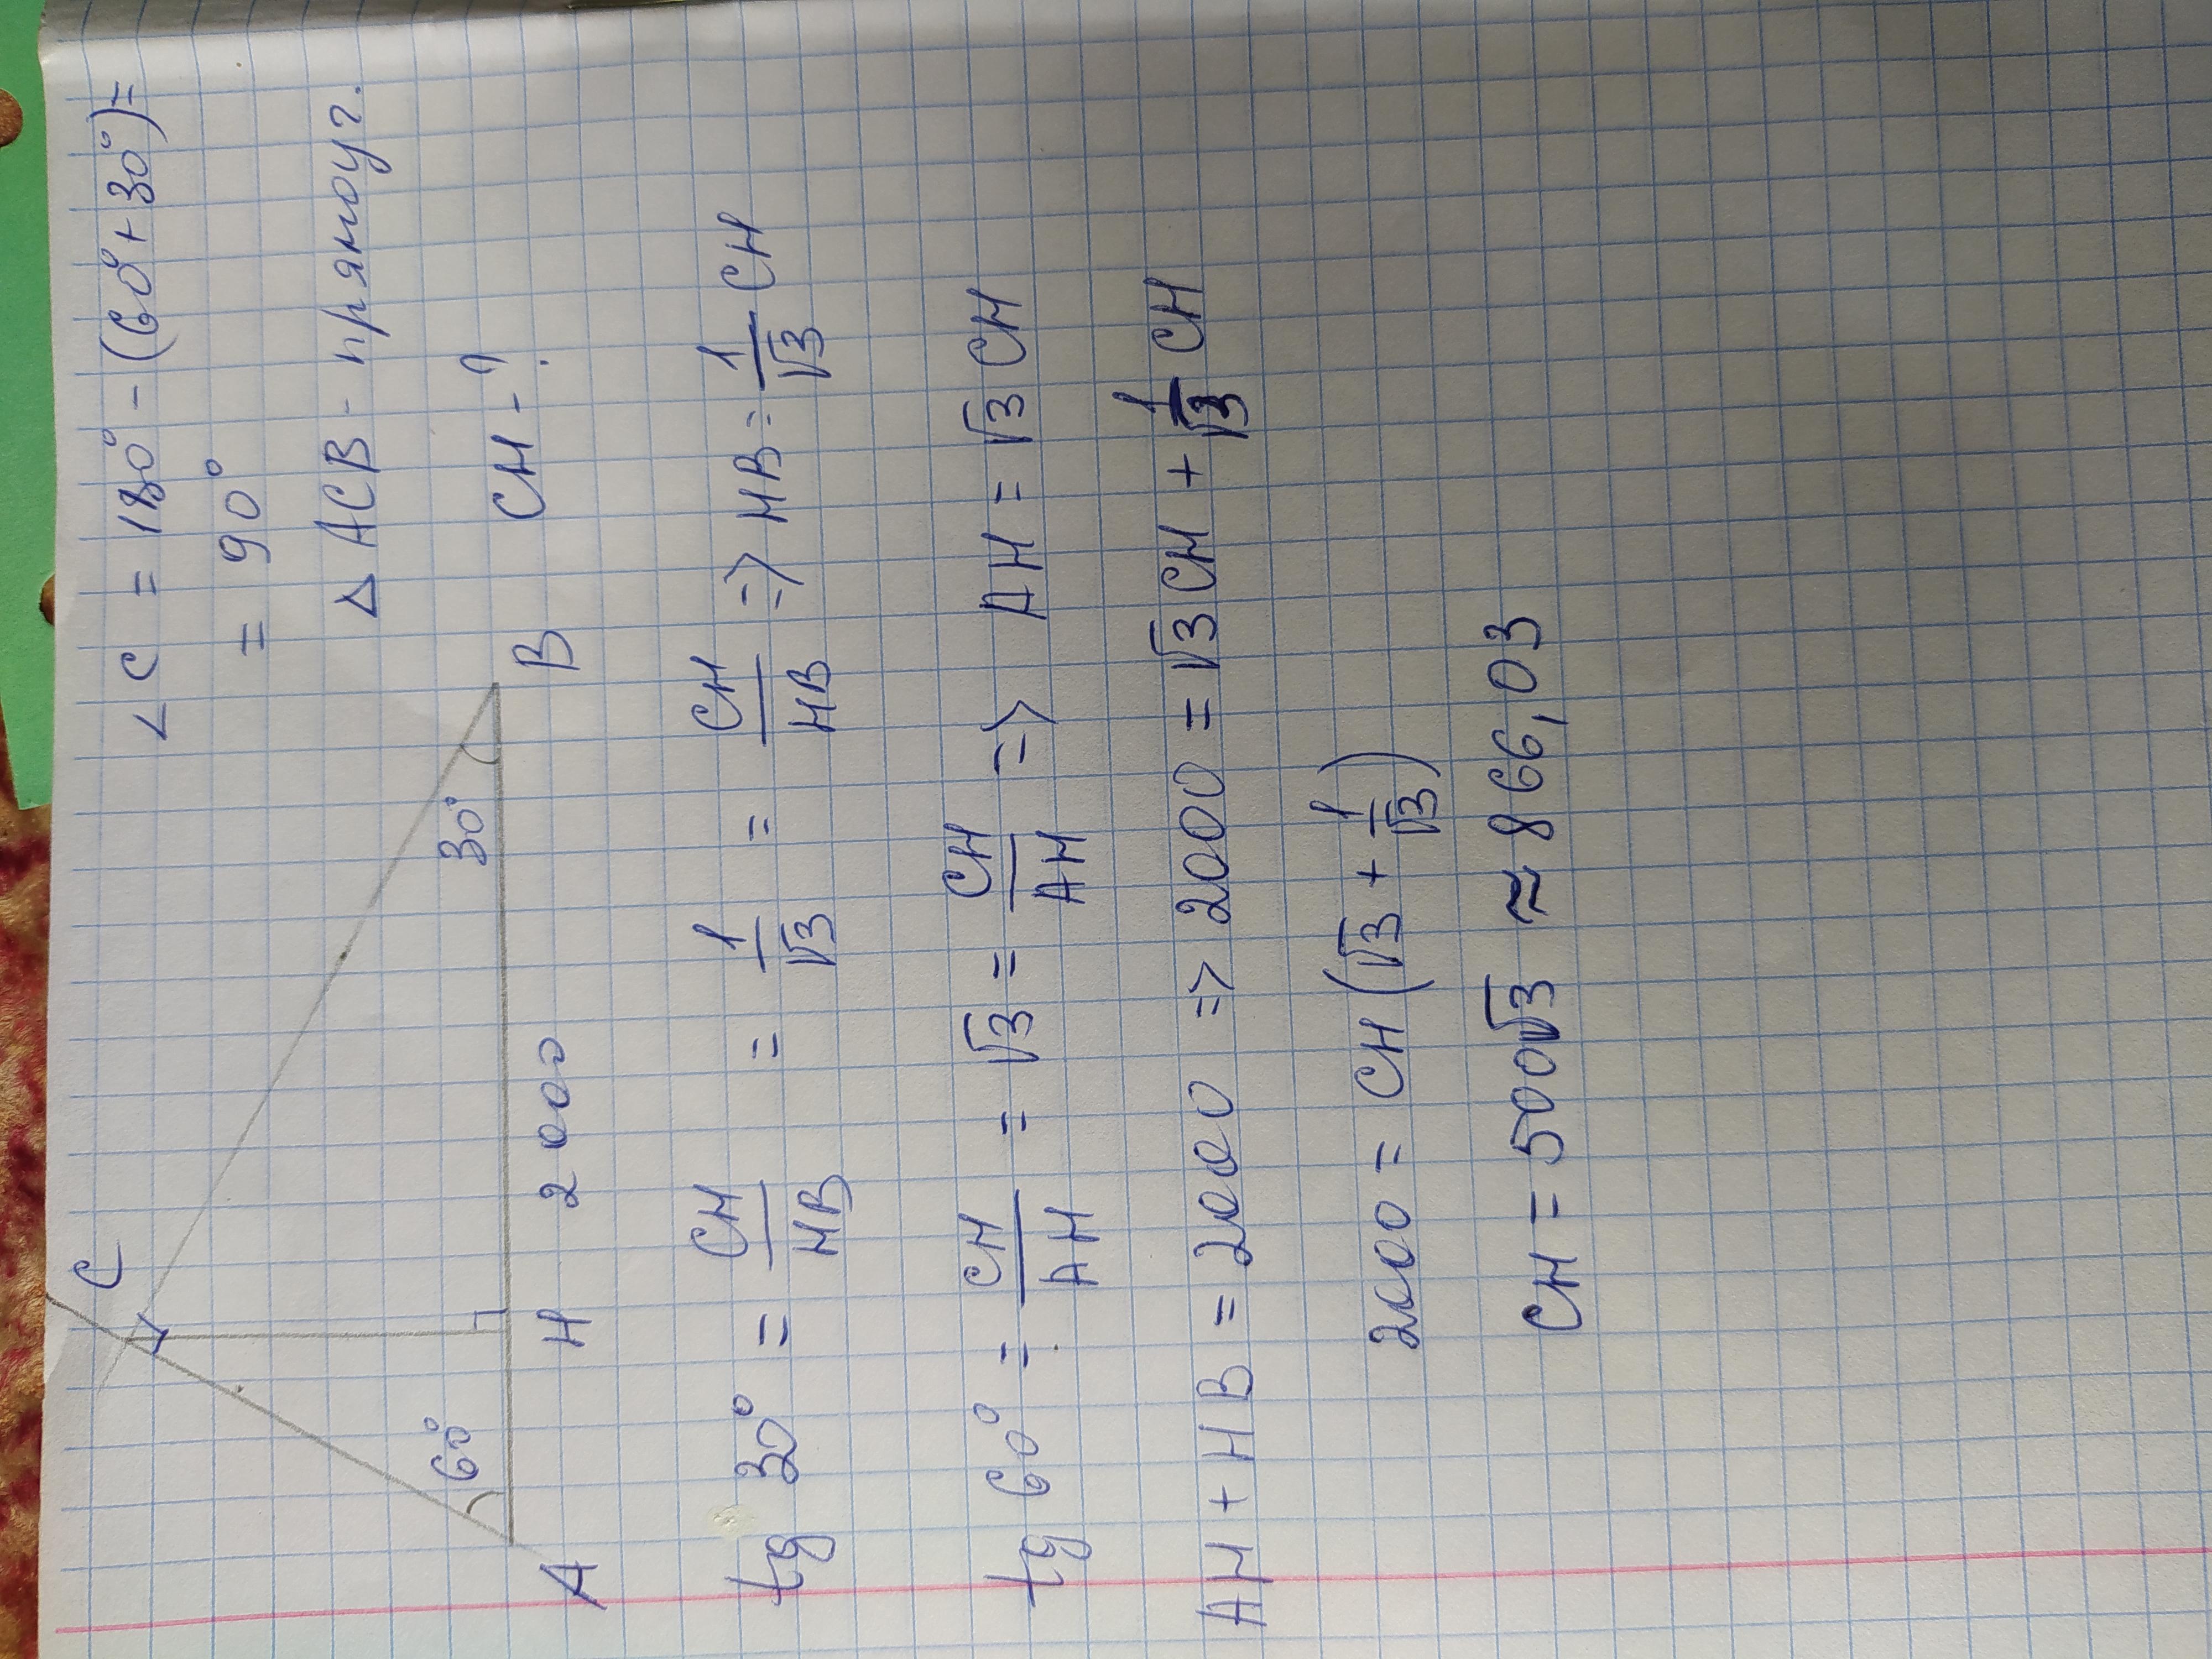 C
∠C = 180° - (60° + 30°) =
= 90°
△ ACB - прямоуг.
CH - ?
60°
30°
A
H
2000
B
tg 30° = CH/HB = 1/√3 = CH/HB => HB = 1/√3 CH
tg 60° = CH/AH = √3 = CH/AH => AH = √3 CH
AH + HB = 2000 => 2000 = √3 CH + 1/√3 CH
2000 = CH (√3 + 1/√3)
CH = 500√3 ≈ 866,03